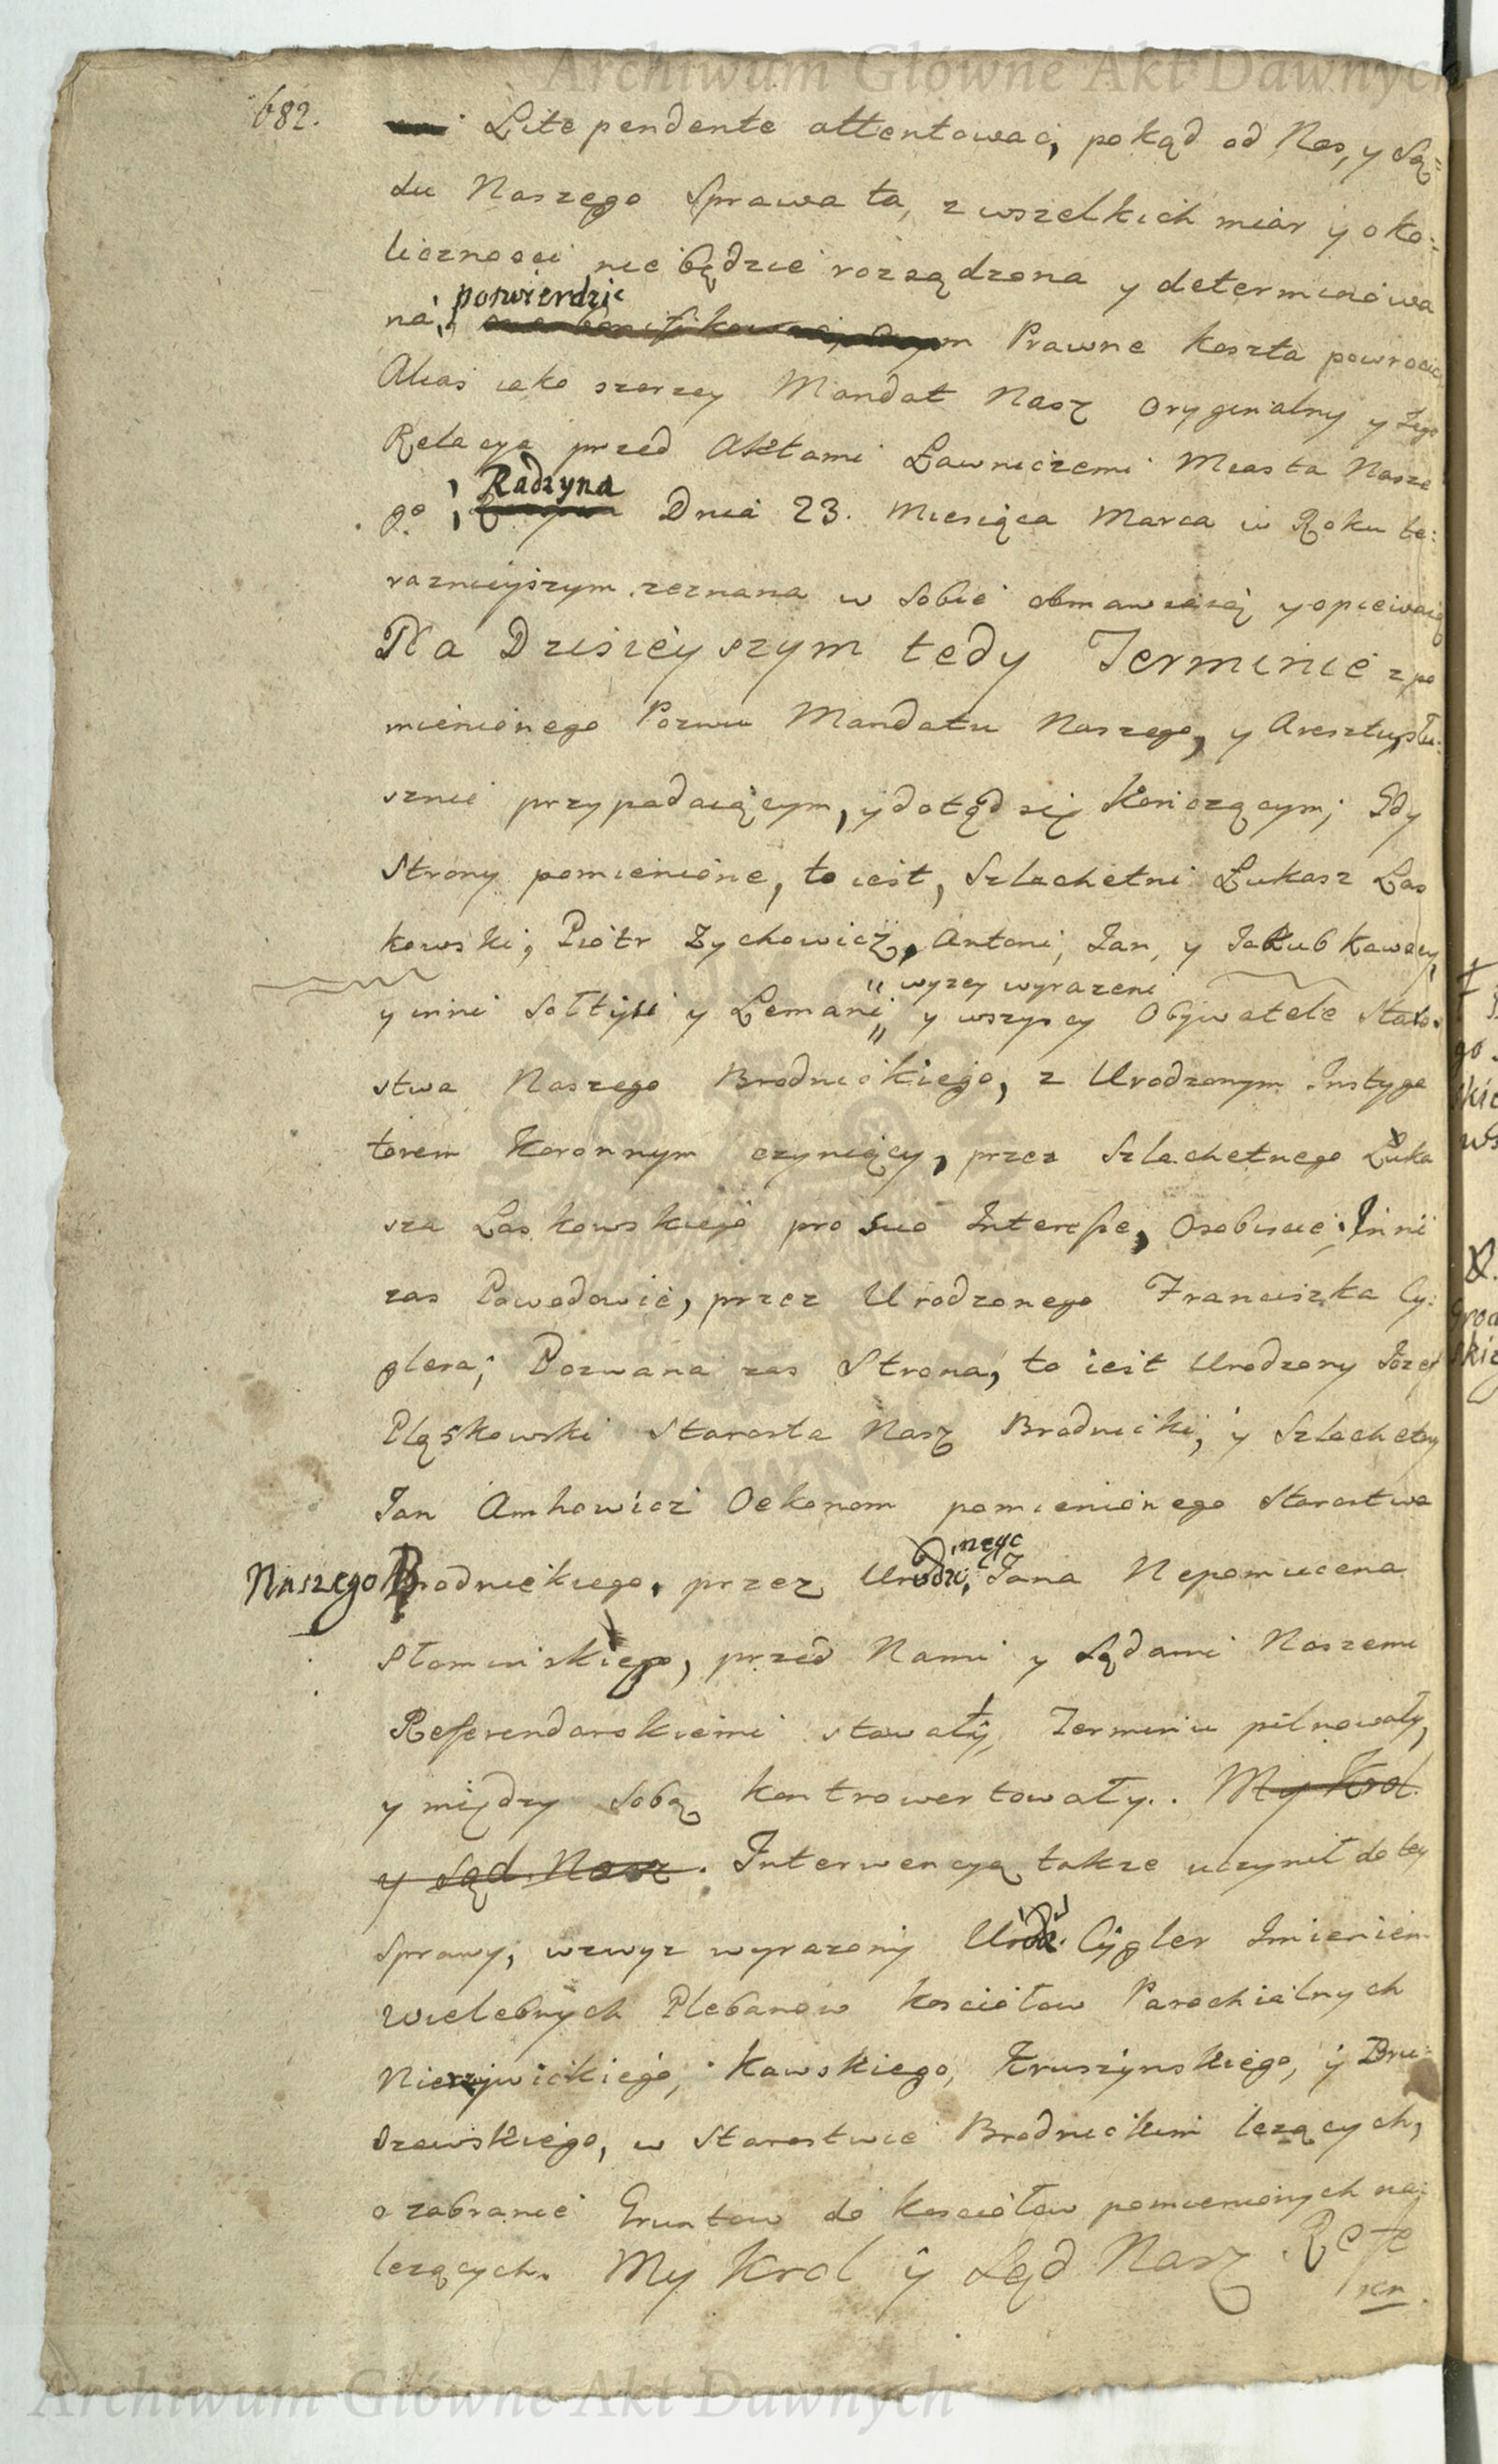 Archiwum Główne Akt Dawnych
682.
Lite pendente attentowac, pokąd od Nas, y Są=
du Naszego Sprawa ta, z wszelkich miar y oko=
licznosci nie będzie rozsądzona y determinowa
potwierdzic
na, Prawne koszta powrocic
Alias iako szerzey Mandat Nasz Oryginalny y Iego
Relacya przed Aktami Ławniczemi Miasta Nasze
Radzyna
go Dnia 23. Miesiąca Marca w Roku te=
raznieyszym zeznana w Sobie obmawiaią y opiewaią
Na Dzisieyszym tedy Terminie z po
mienionego Pozwu Mandatu Naszego, y Aresztu, słu=
sznie przypadaiącym, y dotąd się Kończącym; Gdy
Strony pomienione, to iest, Szlachetni Łukasz Las
kowski, Piotr Zychowicz, Antoni, Jan, y Jakub Kawscy,
wyzey wyrazeni
y inni Sołtysi y Lemani y wszyscy Obywatele Staro=
stwa Naszego Brodnickiego, z Urodzonym Instyga
torem Koronnym czyniący, przez Szlachetnego Łuka
sza Laskowskiego pro suo Interesse, Osobiscie; Inni
zas Powodowie, przez Urodzonego Franciszka Cy=
glera; Pozwana zas Strona, to iest Urodzony Jozef
Pląskowski Starosta Nasz Brodnicki, y Szlachetny
Jan Amhowicz Oekonom pomienionego Starostwa
nego
Naszego Brodnickiego, przez Urodz. Jana Nepomucena
Słominskiego, przed Nami y Sądami Naszemi
Referendarskiemi stawały, Terminu pilnowały,
y między sobą kontrowertowały. My Krol
y Sąd Nasz. Interwencyą takze uczynił do tey
Sprawy, wzwyz wyrazony Urodz. Cygler Imieniem
Wielebnych Plebanow kosciołow Parochialnych
Nieżywickiego, Kawskiego, Kruszynskiego, y Dru=
szewskiego, w Starostwie Brodnickim lezących,
o zabranie Gruntow do kosciołow pomienionych na=
lezących. My Krol y Sąd Nasz Refe
ren.
Archiwum Główne Akt Dawnych